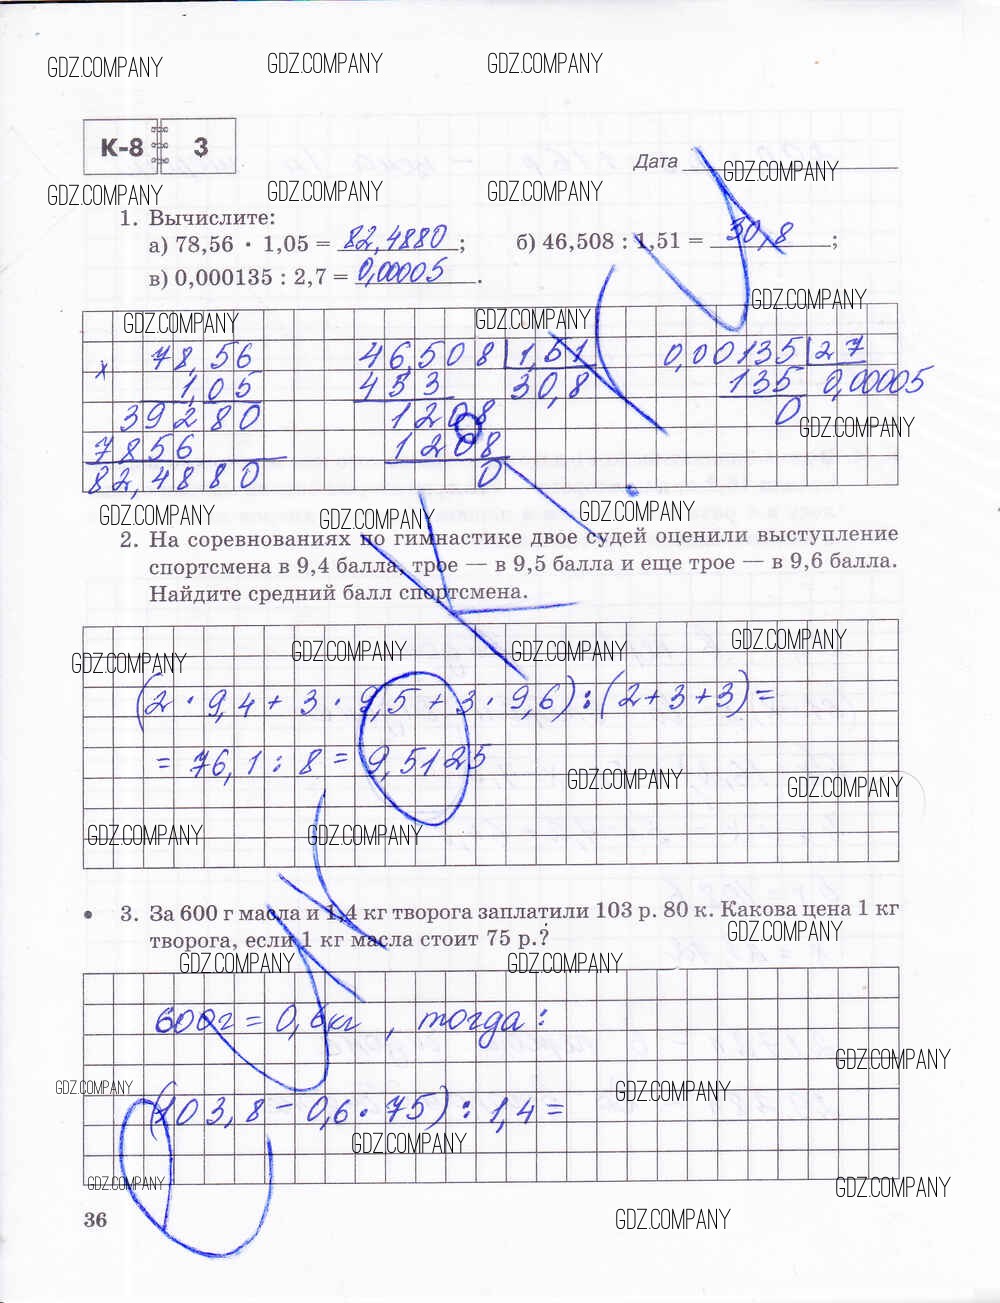 GDZ.COMPANY GDZ.COMPANY GDZ.COMPANY
К-8 3
Дата GDZ.COMPANY
GDZ.COMPANY GDZ.COMPANY GDZ.COMPANY
1. Вычислите:
а) 78,56 · 1,05 = 82,4880; б) 46,508 : 1,51 = 30,8;
в) 0,000135 : 2,7 = 0,00005.
GDZ.COMPANY
GDZ.COMPANY GDZ.COMPANY
х 78,56 46,508 1,51 0,00135 27
1,05 453 30,8 135 0,00005
39280 1208 0
GDZ.COMPANY
7856 1208
82,4880 0
GDZ.COMPANY GDZ.COMPANY GDZ.COMPANY
2. На соревнованиях по гимнастике двое судей оценили выступление
спортсмена в 9,4 балла, трое — в 9,5 балла и еще трое — в 9,6 балла.
Найдите средний балл спортсмена.
GDZ.COMPANY GDZ.COMPANY GDZ.COMPANY GDZ.COMPANY
(2 · 9,4 + 3 · 9,5 + 3 · 9,6) : (2+3+3) =
= 76,1 : 8 = 9,5125
GDZ.COMPANY GDZ.COMPANY
GDZ.COMPANY GDZ.COMPANY
• 3. За 600 г масла и 1,4 кг творога заплатили 103 р. 80 к. Какова цена 1 кг
творога, если 1 кг масла стоит 75 р.?
GDZ.COMPANY
GDZ.COMPANY GDZ.COMPANY
600г = 0,6кг , тогда:
GDZ.COMPANY
GDZ.COMPANY GDZ.COMPANY
(103,8 - 0,6 · 75) : 1,4 =
GDZ.COMPANY
GDZ.COMPANY GDZ.COMPANY
36
GDZ.COMPANY